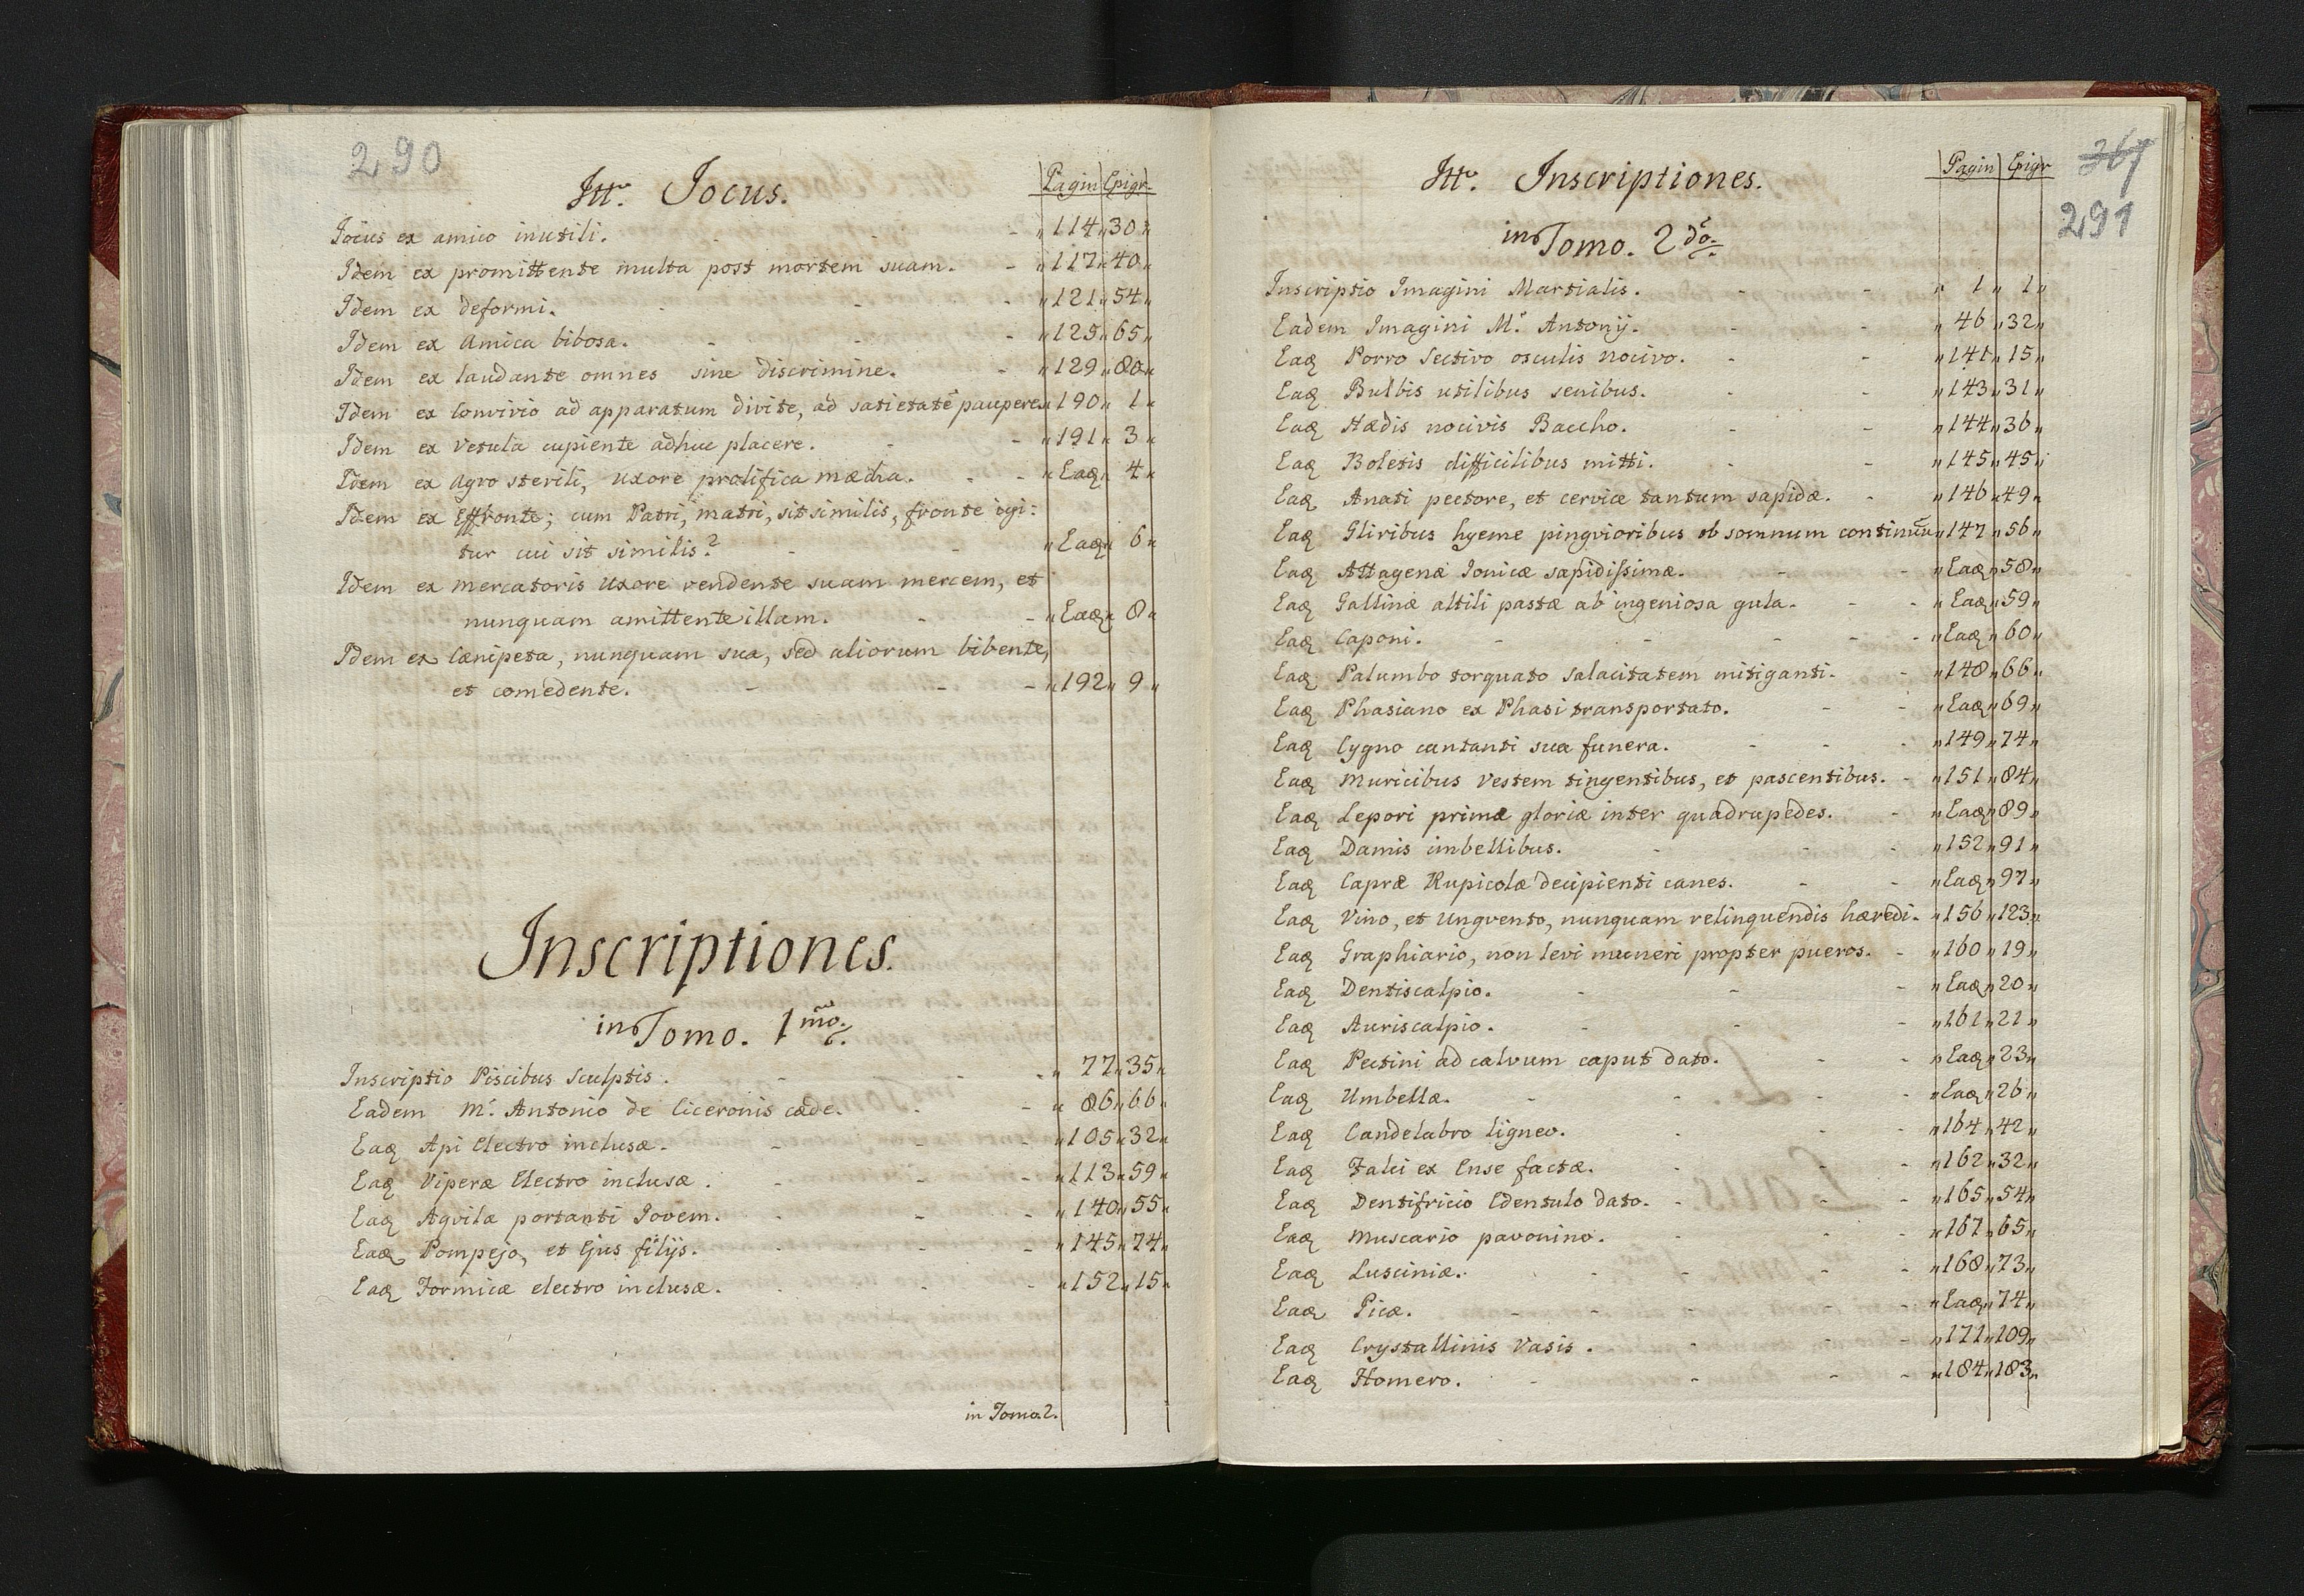 290
Itt. Jocus.
Pagin Epigr.
Jocus ex amico inutili. - - - " 114 " 30 "
Idem ex promittente multa post mortem suam. - " 117 " 40 "
Idem ex deformi. - - - " 121 " 54 "
Idem ex Amica bibosa. - - - " 125 " 65 "
Idem ex laudante omnes sine discrimine. - " 129 " 80 "
Idem ex Convivio ad apparatum divite, ad satietatē paupere " 190 " 1 "
Idem ex Vetula cupiente adhuc placere. - - " 191 " 3 "
Idem ex Agro sterili, uxore prolifica mædia. - - " Eaq " 4 "
Idem ex Effronte; cum Patri, matri, sit similis, fronte igi:
tur cui sit similis? - - " Eaq " 6 "
Idem ex Mercatoris Uxore vendente suam mercem, et
nunquam amittente illam. - - " Eaq " 8 "
Idem ex Cænipeta, nunquam sua, sed aliorum bibente,
et comedente. - - - " 192 " 9 "
Inscriptiones.
in Tomo. 1mo.
Inscriptio Piscibus Sculptis. - - - " 77 " 35 "
Eadem M. Antonio de Ciceronis cæde. - - " 86 " 66 "
Eaq Api Electro inclusæ. - - - " 105 " 32 "
Eaq Viperæ Electro inclusæ. - - - " 113 " 59 "
Eaq Aqvilæ portanti Jovem. - - - " 140 " 55 "
Eaq Pompejo, et Ejus filijs. - - - " 145 " 74 "
Eaq Formicæ electro inclusæ. - - - " 152 " 15 "
in Tomo. 2.
367
291
Itt. Inscriptiones.
Pagin Epigr
in Tomo. 2do.
Inscriptio Imagini Martialis. - - " 1 " 1 "
Eadem Imagini M. Antonij. - - " 46 " 32 "
Eaq Porro Sectivo osculis nocivo. - - " 141 " 15 "
Eaq Bulbis utilibus senibus. - - " 143 " 31 "
Eaq Hædis nocivis Baccho. - - " 144 " 36 "
Eaq Boletis difficilibus mitti. - - " 145 " 45 "
Eaq Anati pectore, et cervice tantum sapidæ. - " 146 " 49 "
Eaq Gliribus hyeme pingvioribus ob somnum continuū " 147 " 56 "
Eaq Attagenæ Ionicæ sapidissimæ. - - " Eaq " 58 "
Eaq Gallinæ altili pastæ ab ingeniosa gula. - - " Eaq " 59 "
Eaq Caponi. - - - - - " Eaq " 60 "
Eaq Palumbo torquato salacitatem mitiganti. - " 148 " 66 "
Eaq Phasiano ex Phasi transportato. - - " Eaq " 69 "
Eaq Cygno cantanti sua funera. - - - " 149 " 74 "
Eaq Muricibus Vestem tingentibus, et pascentibus. - " 151 " 84 "
Eaq Lepori primæ gloriæ inter quadrupedes. - " Eaq " 89 "
Eaq Damis imbellibus. - - - " 152 " 91 "
Eaq Capræ Rupicolæ decipienti canes. - - " Eaq " 97 "
Eaq Vino, et Ungvento, nunquam relinquendis hæredi. " 156 " 123 "
Eaq Graphiario, non levi muneri propter pueros. - " 160 " 19 "
Eaq Dentiscalpio. - - - " Eaq " 20 "
Eaq Auriscalpio. - - - " 161 " 21 "
Eaq Pectini ad calvum caput dato. - - " Eaq " 23 "
Eaq Umbellæ. - - - - " Eaq " 26 "
Eaq Candelabro ligneo. - - - " 164 " 42 "
Eaq Falci ex Ense factæ. - - - " 162 " 32 "
Eaq Dentifricio Edentulo dato. - - - " 165 " 54 "
Eaq Muscario pavonino. - - - " 167 " 65 "
Eaq Lusciniæ. - - - - " 168 " 73 "
Eaq Picæ. - - - - - " Eaq " 74 "
Eaq Crystallinis Vasis. - - - " 171 " 109 "
Eaq Homero. - - - - " 184 " 183 "